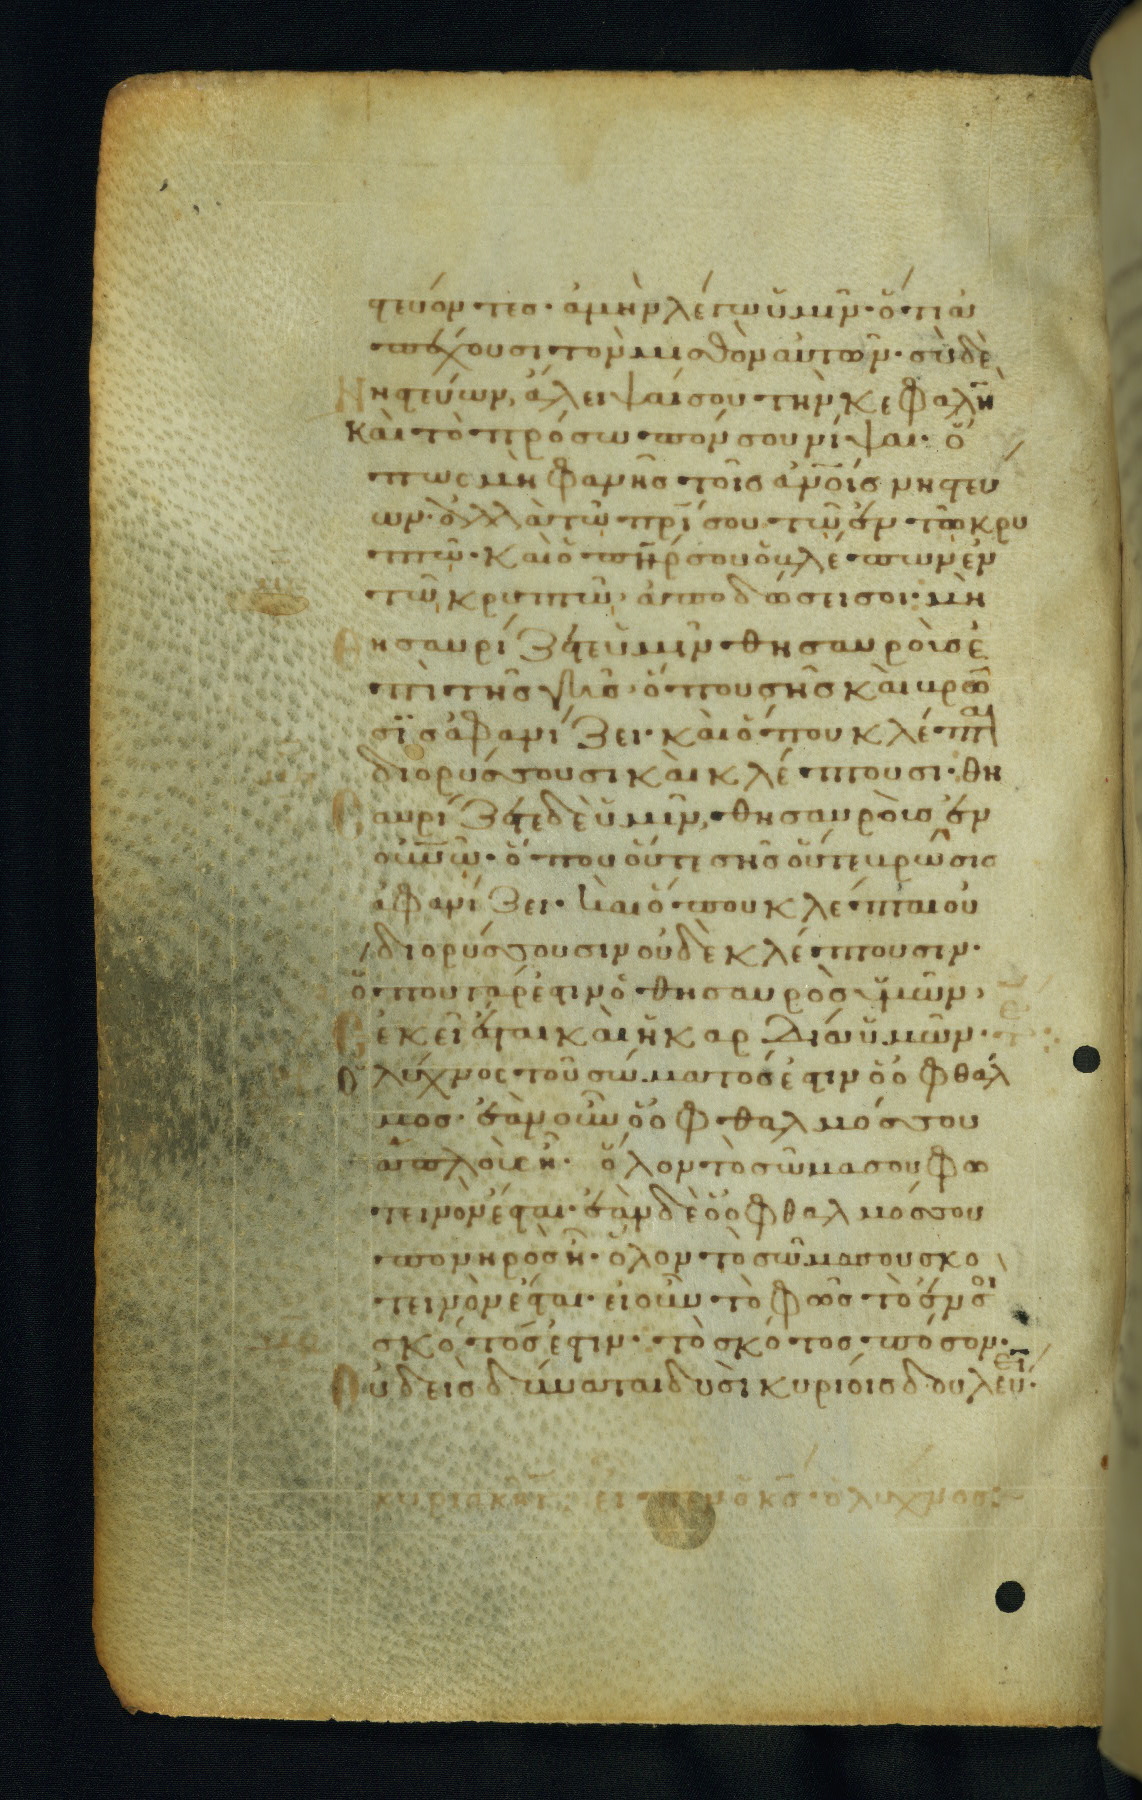 στεύοντες· ἀμὴν λέγω ὑμῖν· ὅτι ἀ
πέχουσι τὸν μισθὸν αὐτῶν· σὺ δὲ
νηστεύων, ἄλειψαί σου τὴν κεφαλὴν
καὶ τὸ πρόσωπόν σου νίψαι· ὅ
πως μὴ φανῆς τοῖς ἀνοις νηστευ
ων· ἀλλὰ τῶ πρι σου τῶ ἐν τῶ κρυ
πτῶ· καὶ ὁ πηρ σου ὁ βλέπων ἐν
τῶ κρυπτῶ, ἀποδώσει σοι· μὴ
θησαυρίζετε ὑμῖν θησαυροὺς ἐ
πὶ τῆς γῆς· ὅπου σὴς καὶ βρῶ
σις ἀφανίζει· καὶ ὅπου κλέπται
διορύσσουσι καὶ κλέπτουσι· θη
σαυρίζετε δὲ ὑμῖν, θησαυροὺς ἐν
οὐνῶ· ὅπου οὔτε σὴς οὔτε βρῶσις
ἀφανίζει· καὶ ὅπου κλέπται οὐ
διορύσσουσιν οὐδὲ κλέπτουσιν·
ὅπου γάρ ἐστιν ὁ θησαυρὸς ὑμῶν,
ἐκεῖ ἔσται καὶ ἡ καρδία ὑμῶν·
ὁ λύχνος τοῦ σώματός ἐστιν ὁ ὀφθαλ
μος· ἐὰν οὖν ὁ ὀφθαλμός σου
ἁπλοὺς ἦ· ὅλον τὸ σῶμα σου φω
τεινὸν ἔσται· ἐὰν δὲ ὁ ὀφθαλμός σου
πονηρὸς ἦ· ὅλον τὸ σῶμα σου σκο
τεινὸν ἔσται· εἰ οὖν τὸ φῶς τὸ ἐν σοὶ
σκότος ἐστιν· τὸ σκότος πόσον·
Οὐδεὶς δύναται δυσὶ κυρίοις δουλεύειν·
εἶπεν ὁ κς· ὁ λύχνος